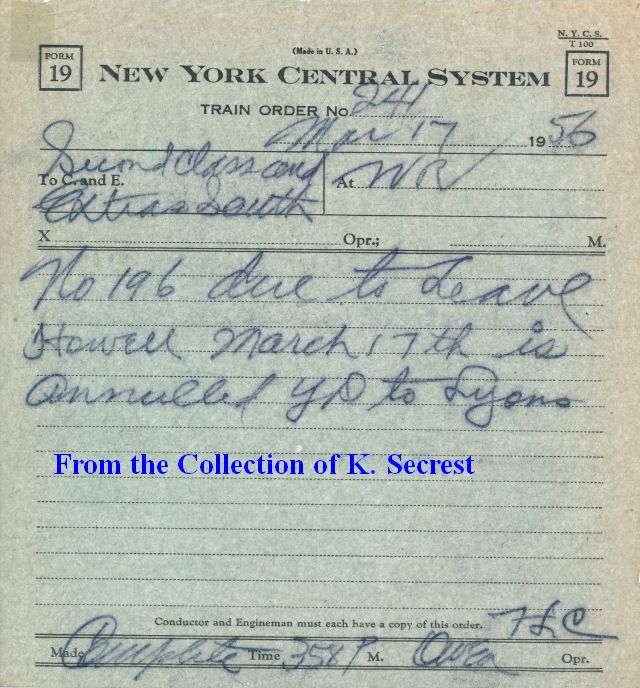 (Made in U. S. A.)
N. Y. C. S.
T 100
FORM 19
NEW YORK CENTRAL SYSTEM
FORM 19
TRAIN ORDER No. 241
Mar 17 1956
Second Class and
To C. and E. At WR
Extras South
X Opr.; M.
No 196 due to Leave
Howell March 17th is
Annulled YD to Lyons
From the Collection of K. Secrest
Conductor and Engineman must each have a copy of this order. 
Made Complete Time 358 P M. Opr.